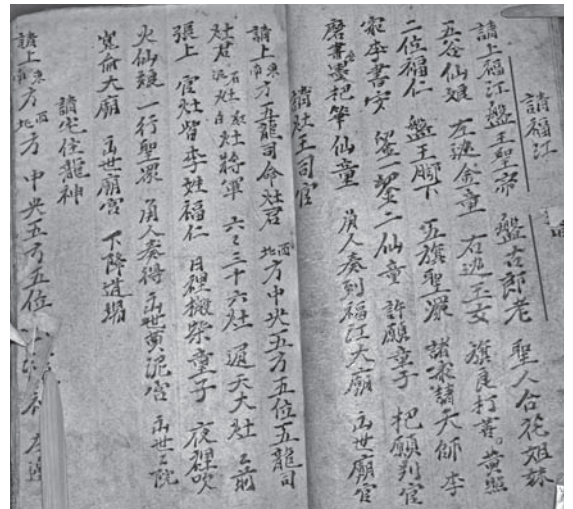 請福江
請上福江盤王聖帝 盤古郎老 聖人合花姐妹
五谷仙娘 左边金童 右边玉女 旗良打菩 黄照
二位福仁 盤王腳下 五旗聖眾 諸家請天師 李
家李書安 鋆一鋆二仙童 許願童子 把願判官
磨書墨把筆仙童 眉人奏到福江大廟 出世廟官
請灶王司官
請上東南方五龍司命灶君 西北方中央五方五位五龍司
灶君 石灶 灶將軍 六六三十六灶 通天大灶
張上 官灶皆李姓福仁 日裡搬柴童子 夜裡吹
火仙娘 一行聖眾 眉人奏得 出世黄泥宫 出世
寬俞大廟 出世廟宫 下降道場
請宅住龍神
請上東南方 西北方 中央五方五位